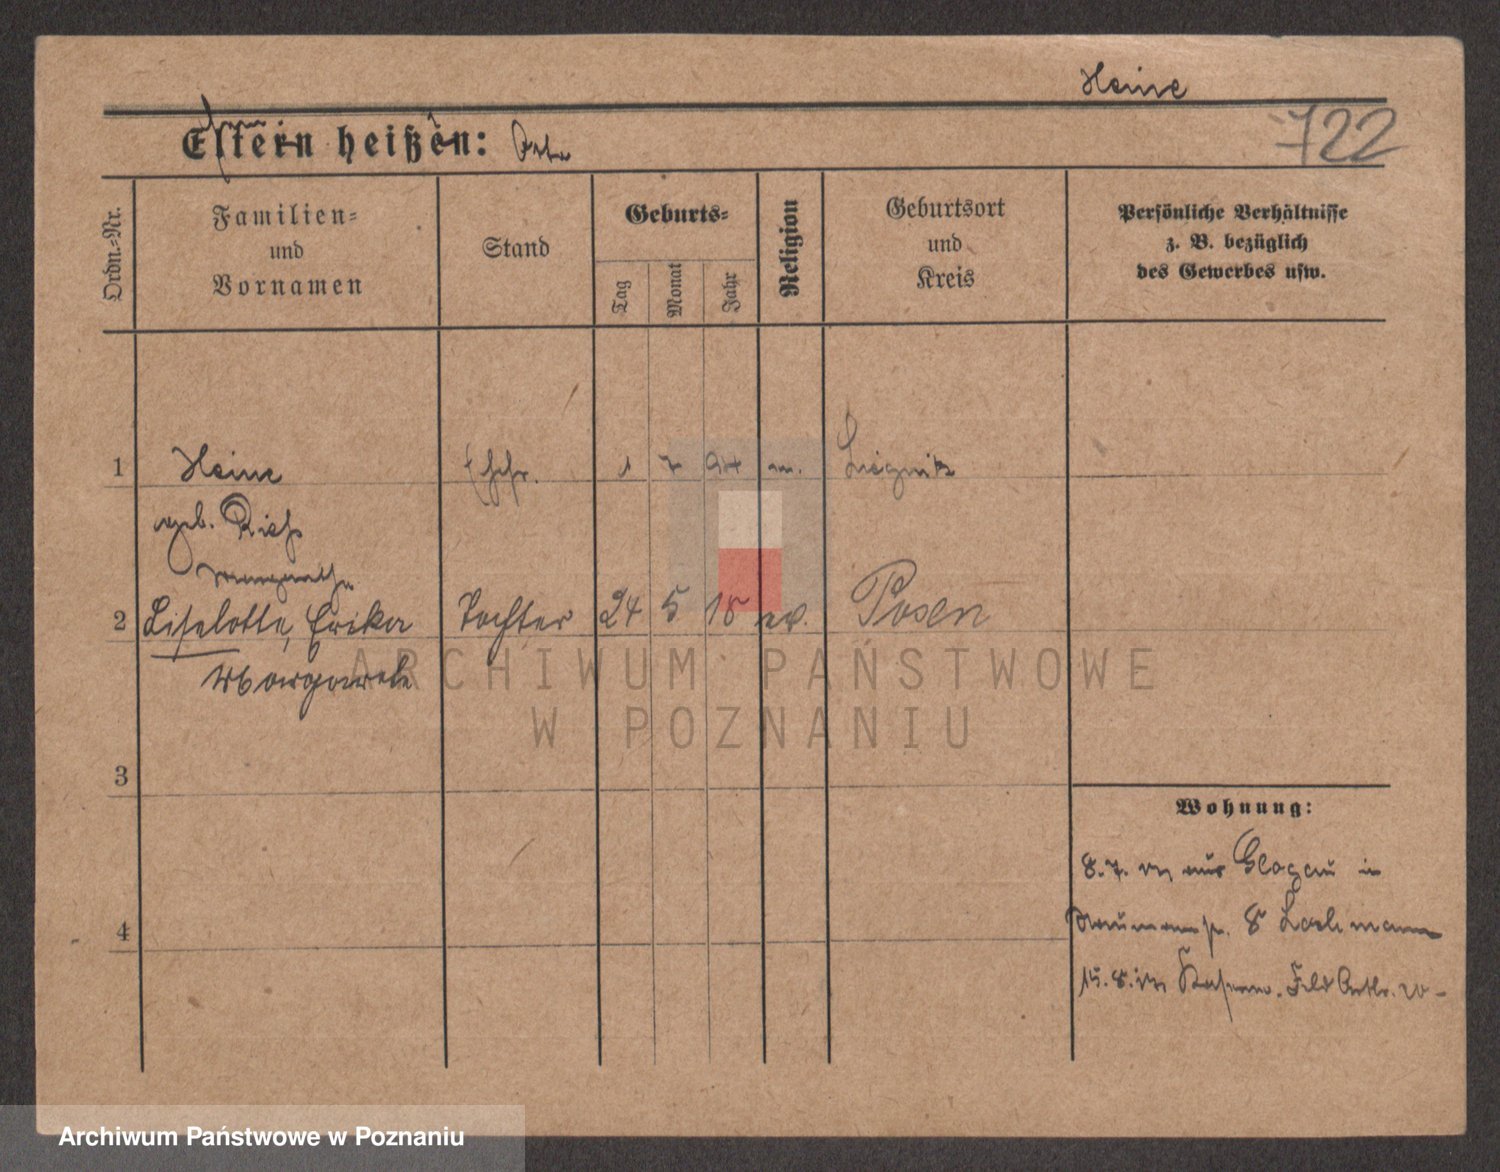 Heine
722
Eltern heißen:
Ordn.-Nr.
Familien=
und
Vornamen
Stand
Geburts=
Tag
Monat
Jahr
Religion
Geburtsort
und
Kreis
Persönliche Verhältnisse
z. B. bezüglich
des Gewerbes usw.
1 Heine Ehefr. 1 7 94 Liegnitz
geb.
Margarethe
2 Liselotte, Erika Tochter 24 5 18 ev. Posen
Margarete
ARCHIWUM PAŃSTWOWE
W POZNANIU
3
Wohnung:
8.7. aus Glogau in
4
Naumannstr. 8
15.8. Feld
Archiwum Państwowe w Poznaniu